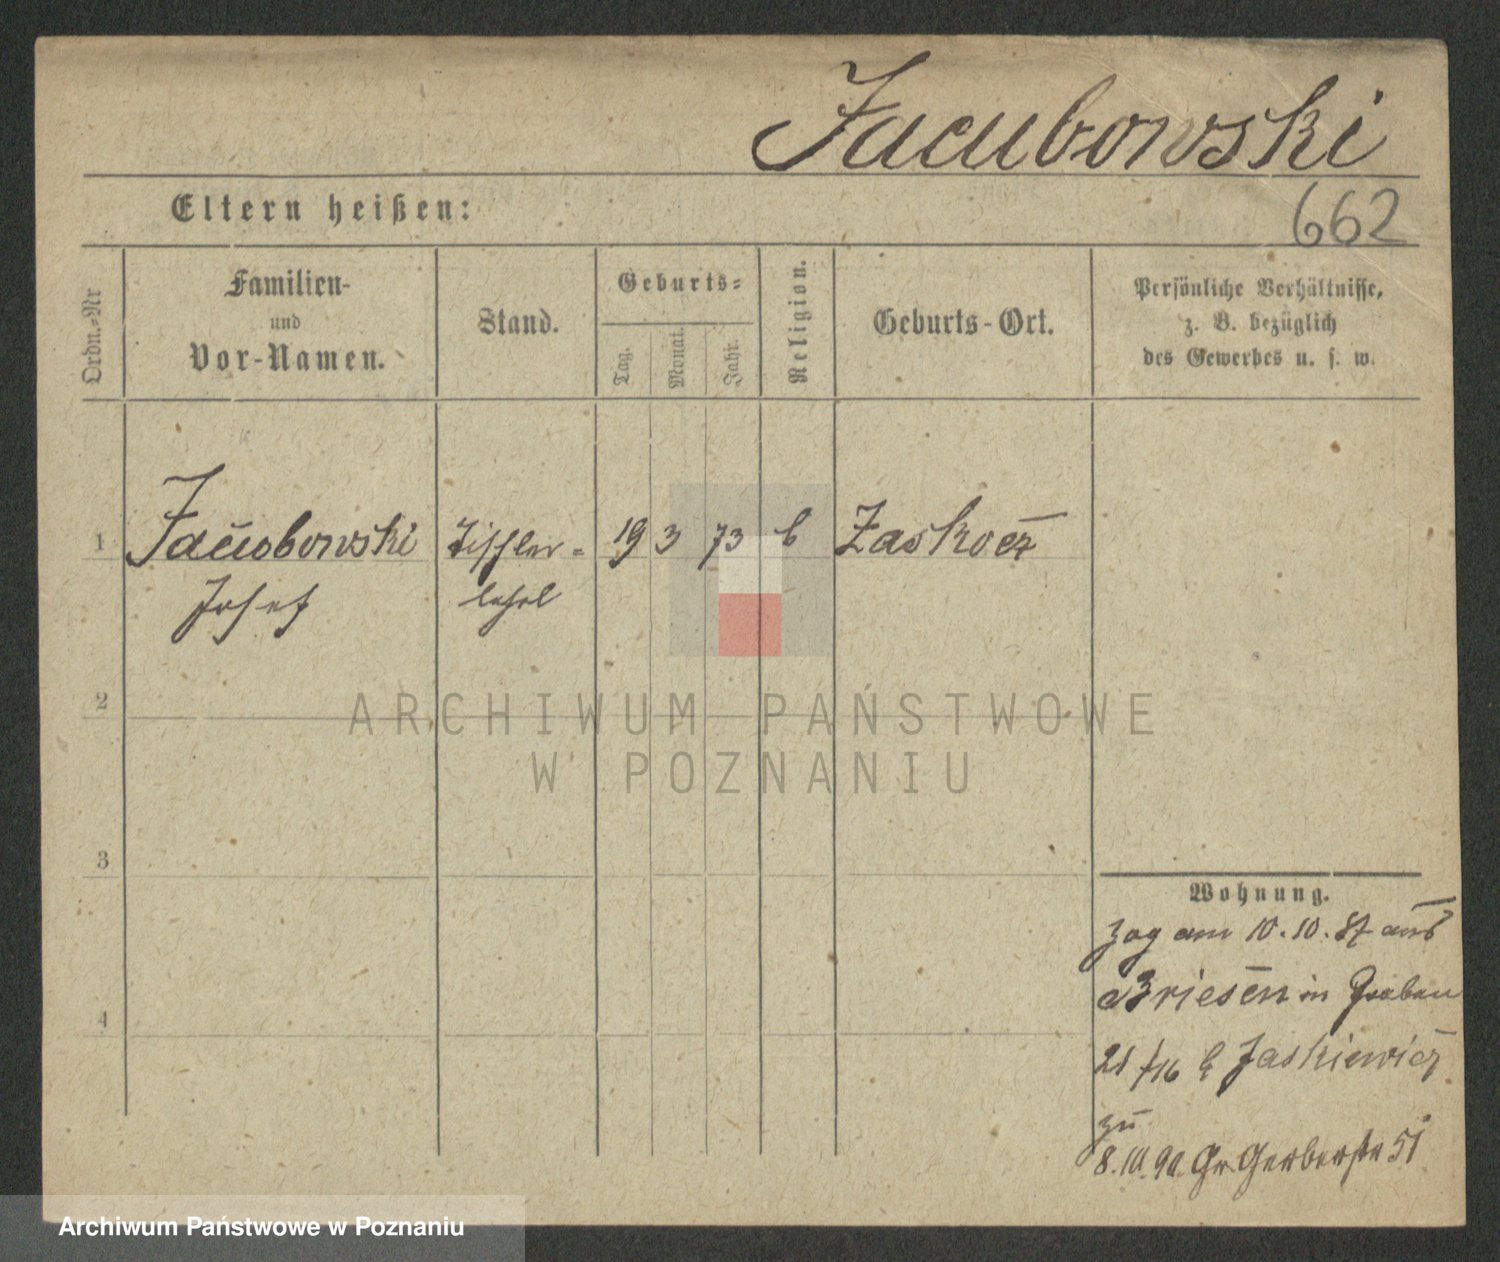 Jacubowski
Eltern heißen:
662
Ordn.-Nr
Familien-
und
Vor-Namen.
Stand.
Geburts-
Tag.
Monat.
Jahr.
Religion.
Geburts-Ort.
Persönliche Verhältnisse,
z. B. bezüglich
des Gewerbes u. s. w.
1 Jacubowski Tischler- 19 3 73 Zaskocz
Josef lehrl
2
ARCHIWUM PAŃSTWOWE
W POZNANIU
3
Wohnung.
zog am 10.10.87 aus
Briesen in Graben
4
21/16 Jaskiewicz
zu
8.10.90. Gr. Gerberstr 51
Archiwum Państwowe w Poznaniu